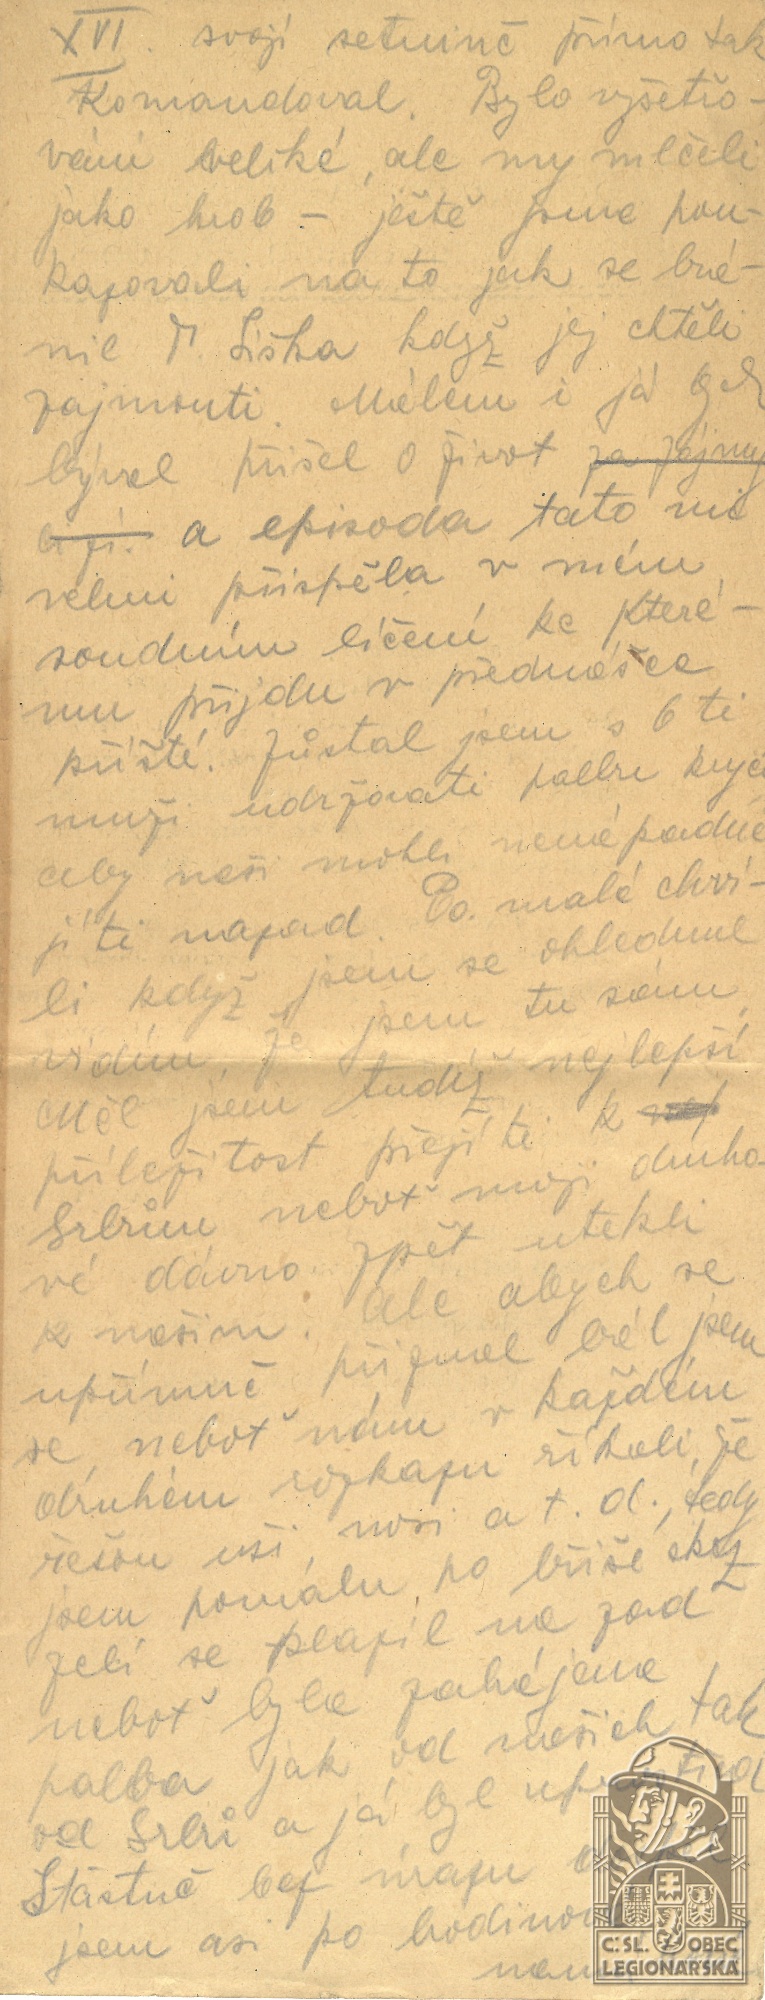 XVI. svojí setnině přímo tak
Komandoval. Bylo vyšetřo-
vání veliké, ale my mlčeli
jako hrob – ještě jsme pou-
kazovali na to jak se brá-
nil P. Liška když jej chtěli
zajmouti. Málem i já
býval přišel o život za zájmy
a episoda tato mě
velmi přispěla v mém
soudním líčení ke které-
mu přijdu v přednášce
příště. Zůstal jsem s 6 ti
muži udržovati palbu
aby naši mohli nenápadně
jíti nazad. Po malé chví-
li když jsem se ohlednul
vidím, že jsem tu sám,
měl jsem tudíž nejlepší
přiležitost přejíti k
Srbům neboť moji druho-
vé dávno zpět utekli
k našim. Ale abych se
upřímně přiznal bál jsem
se, neboť nám v každém
druhém rozkazu říkali, že
řežou uši, nosi a t. d., tedy
jsem pomálu po břiše skrz
zelí se plazil na zad
neboť byla zahájena
palba jak od našich tak
od Srbů a já byl uprostřed
Štástně bez úrazu
jsem asi po hodinové
C:SL. OBEC
LEGIONÁŘSKÁ